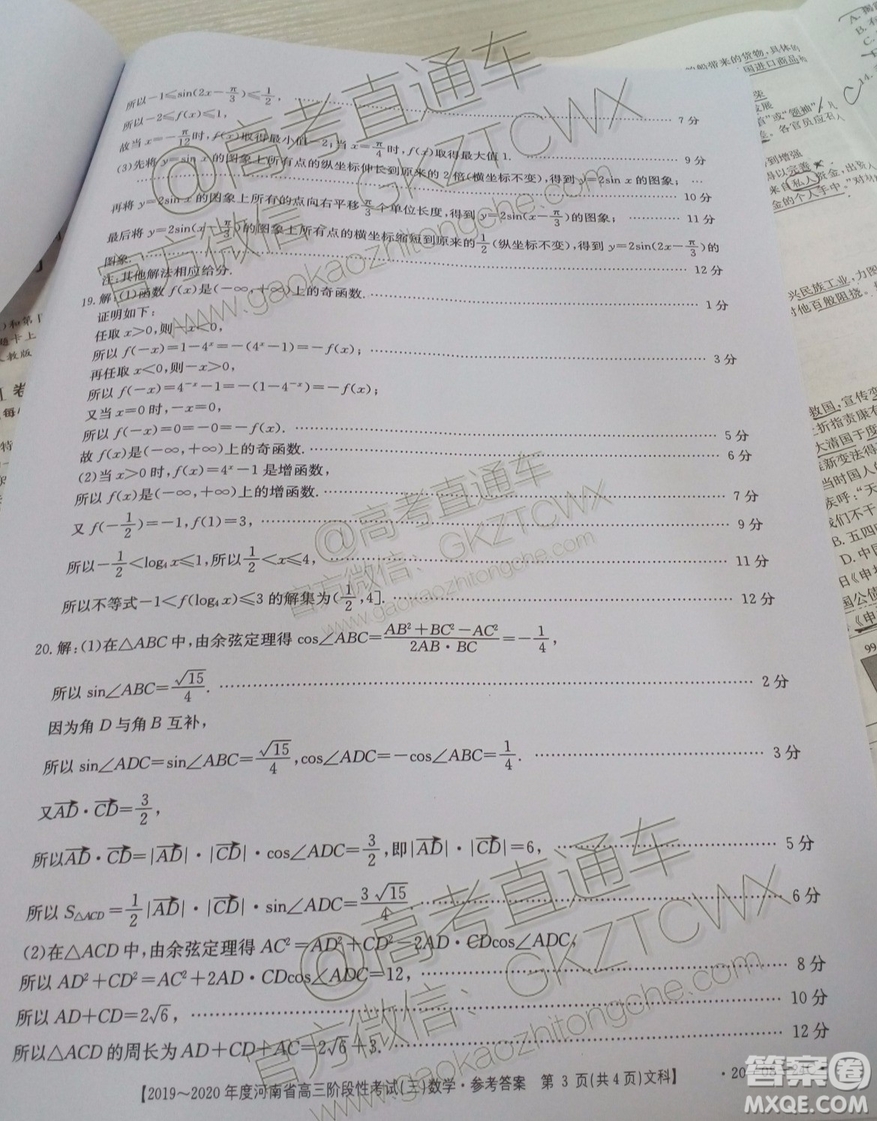 所以-1≤sin(2x-π/3)≤1/2,
所以-2≤f(x)≤1, …… 7分
故当x=-π/12时,f(x)取得最小值-2;当x=π/4时,f(x)取得最大值1. …… 9分
(3)先将y=sin x的图象上所有点的纵坐标伸长到原来的2倍(横坐标不变),得到y=2sin x的图象; …
…… 10分
再将y=2sin x的图象上所有的点向右平移π/3个单位长度,得到y=2sin(x-π/3)的图象; …… 11分
最后将y=2sin(x-π/3)的图象上所有点的横坐标缩短到原来的1/2(纵坐标不变),得到y=2sin(2x-π/3)的
图象. …… 12分
注:其他解法相应给分.
19.解:(1)函数f(x)是(-∞,+∞)上的奇函数. …… 1分
证明如下:
任取x>0,则-x<0,
所以f(-x)=1-4ˣ=-(4ˣ-1)=-f(x); …… 3分
再任取x<0,则-x>0,
所以f(-x)=4⁻ˣ-1=-(1-4⁻ˣ)=-f(x);
又当x=0时,-x=0,
所以f(-x)=0=-0=-f(x). …… 5分
故f(x)是(-∞,+∞)上的奇函数. …… 6分
(2)当x>0时,f(x)=4ˣ-1是增函数,
所以f(x)是(-∞,+∞)上的增函数. …… 7分
又f(-1/2)=-1,f(1)=3, …… 9分
所以-1/2<log₄x≤1,所以1/2<x≤4, …… 11分
所以不等式-1<f(log₄x)≤3的解集为(1/2,4]. …… 12分
20.解:(1)在△ABC中,由余弦定理得cos∠ABC=(AB²+BC²-AC²)/(2AB·BC)=-1/4,
所以sin∠ABC=√15/4. …… 2分
因为角D与角B互补,
所以sin∠ADC=sin∠ABC=√15/4,cos∠ADC=-cos∠ABC=1/4. …… 3分
又AD→·CD→=3/2,
所以AD→·CD→=|AD→|·|CD→|·cos∠ADC=3/2,即|AD→|·|CD→|=6, …… 5分
所以S△ACD=1/2|AD→|·|CD→|·sin∠ADC=3√15/4. …… 6分
(2)在△ACD中,由余弦定理得AC²=AD²+CD²-2AD·CDcos∠ADC,
所以AD²+CD²=AC²+2AD·CDcos∠ADC=12, …… 8分
所以AD+CD=2√6, …… 10分
所以△ACD的周长为AD+CD+AC=2√6+3. …… 12分
【2019~2020年度河南省高三阶段性考试(三)数学·参考答案 第3页(共4页)文科】
@高考直通车
官方微信:GKZTCWX
www.gaokaozhitongche.com
@高考直通车
官方微信:GKZTCWX
www.gaokaozhitongche.com
@高考直通车
官方微信:GKZTCWX
www.gaokaozhitongche.com
答案圈
MXQE.COM